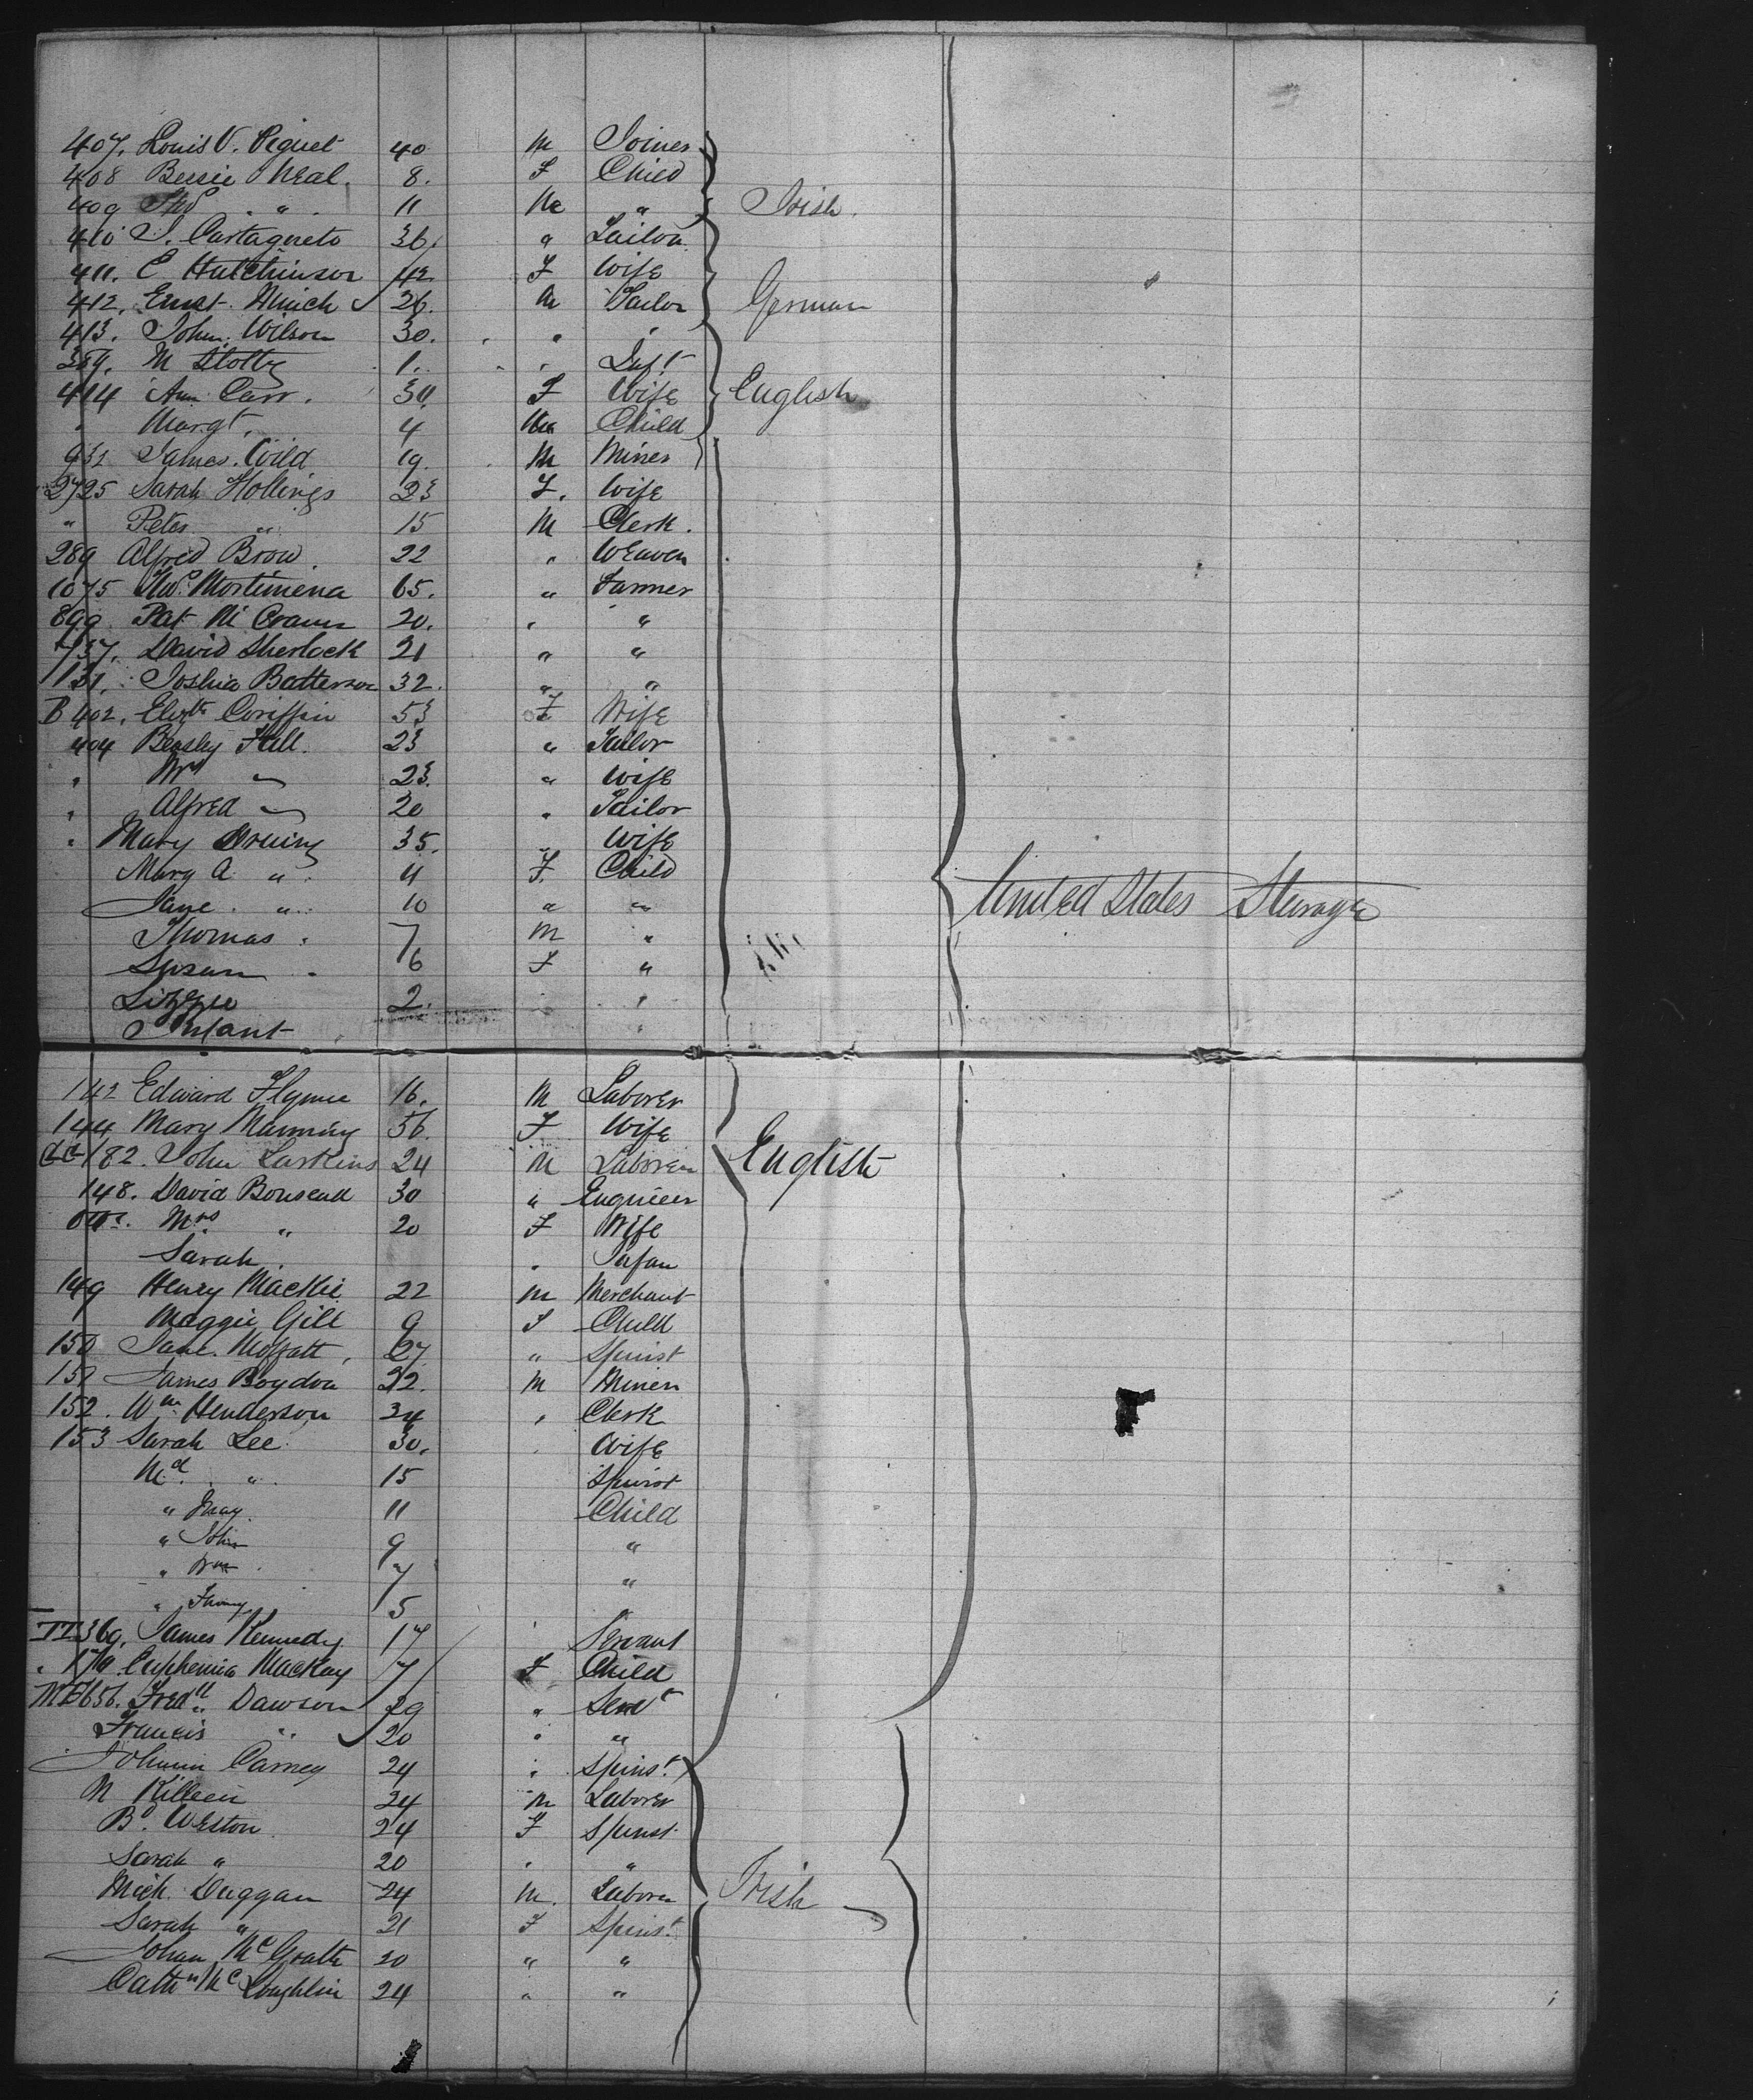 407. Louis V. Piguet 40 M Joiner
408 Bessie Neal. 8. F Child
409 Thos " 11 M " Irish.
410 J. Castagneto 36. " Tailor
411. E Hutchinson 42 F Wife
412. Ernst Minich 26. M Tailor German
413. John Wilson 30. " "
389. M Stolty 1. " Inft
414 Ann Carr. 30 F Wife English
" Margt. 4 Child
932 James Wild 19. M Miner
2725 Sarah Hollings 23 F. Wife
" Peter " 15 M Clerk.
289 Alfred Brow. 22 " Weaver
1075 Thos. Mortimena 65. " Farmer
899 Pat Mc 20. " "
737. David Sherlock 21 " "
131. Joshua Batterson 32. " "
B 402. Elizth Coriffin 53 F Wife
404 Beasly Hall. 23 " Tailor
" Mrs " 23. " Wife
" Alfred " 20 " Tailor
" Mary 35. " Wife
Mary A. " 11 F. Child
Jane. " 10 " " United States Sterage
Thomas " 7 M "
Susan " 6 F "
Lizzie 2. " "
Infant "
142 Edward Flynne 16. M Laborer
144 Mary Manning 56. F Wife
182. John Larkins 24 M Laborer English
148. David Bousead 30 " Engineer
Mrs " 20 F Wife
Sarah. " Infan
149 Henry Mackie 22 M Merchant
Maggie Gill 9 F Child
150 Jane. Moffatt, 27 " Spinst
151 James Boydon 22. M Miner
152. Wm Henderson 34 " Clerk
153 Sarah Lee 30. Wife
" 15 Spinst
" May. 11 Child
" John 9 "
" Wm 7 "
" 5 "
369. James Kennedy 17 Servant
" 179. Euphemia Mackay 7 F Child
656. Fredk Dawson 29 " Servt
Francis " 20 " "
Johann Carney 24 " Spinst.
M Killeen 24 M Laborer
Bd. Weston 24 F Spinst.
Sarah " 20 " "
Mich. Duggan 24 M. Laborer Irish
Sarah " 21 F Spinst.
Johan McGrath 20 " "
Cathn McLoughlin 24 " "